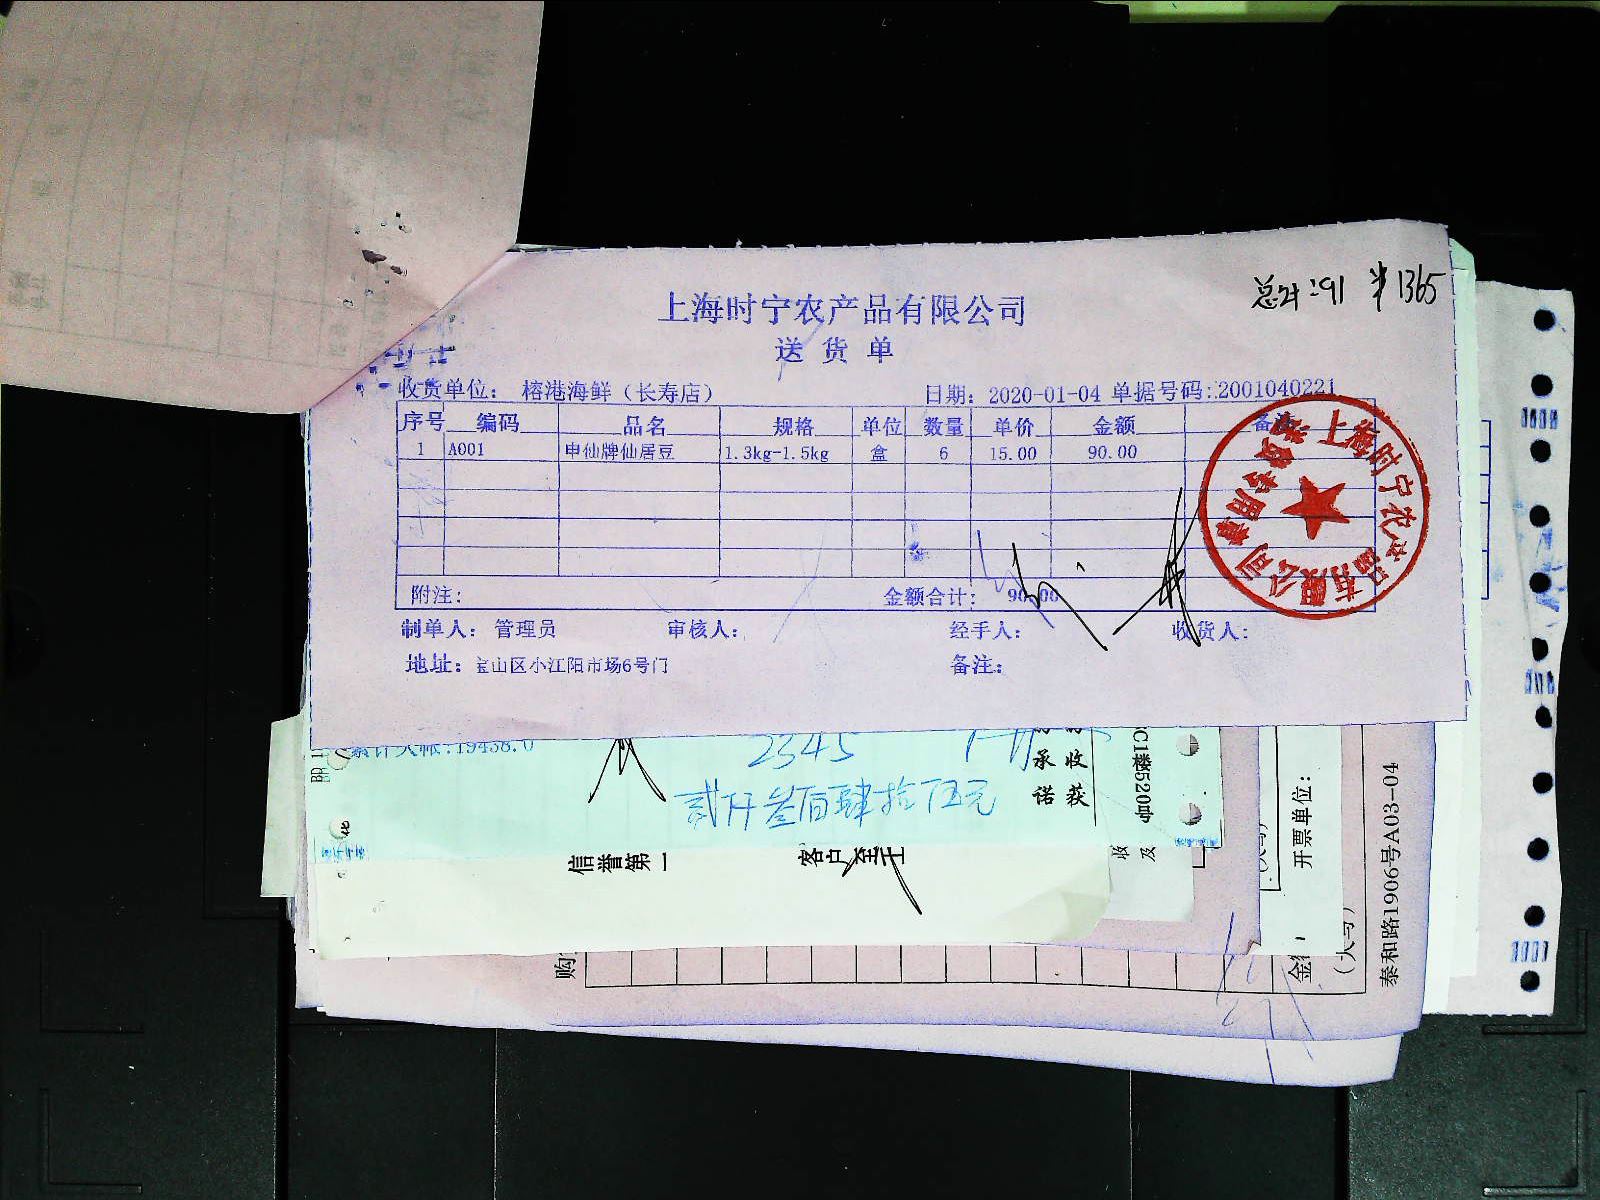 总计:91 半1365
上海时宁农产品有限公司
送货单
收货单位: 榕港海鲜（长寿店） 日期: 2020-01-04 单据号码:2001040221
序号 编码 品名 规格 单位 数量 单价 金额 备注
1 A001 申仙牌仙居豆 1.3kg-1.5kg 盒 6 15.00 90.00
附注: 金额合计: 90.00
制单人: 管理员 审核人: 经手人: 收货人:
地址: 宝山区小江阳市场6号门 备注:
上海时宁农产品有限公司
送货专用章
累计欠帐:19438.0
2345
贰仟叁佰肆拾伍元
承诺
收获
C1楼520号
信誉第一 客户至上
收
及
开票单位:
购
(大写)
泰和路1906号A03-04